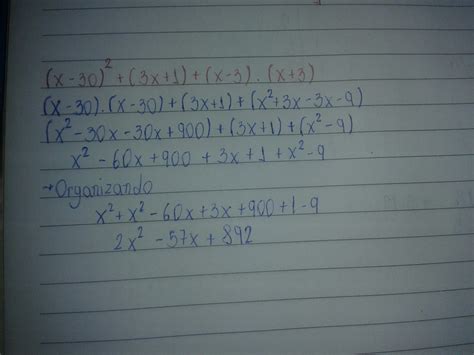 (x-30)² + (3x+1) + (x-3) . (x+3)
(x-30) . (x-30) + (3x+1) + (x²+3x-3x-9)
(x²-30x-30x+900) + (3x+1) + (x²-9)
x² - 60x + 900 + 3x + 1 + x² - 9
→Organizando
x² + x² - 60x + 3x + 900 + 1 - 9
2x² - 57x + 892